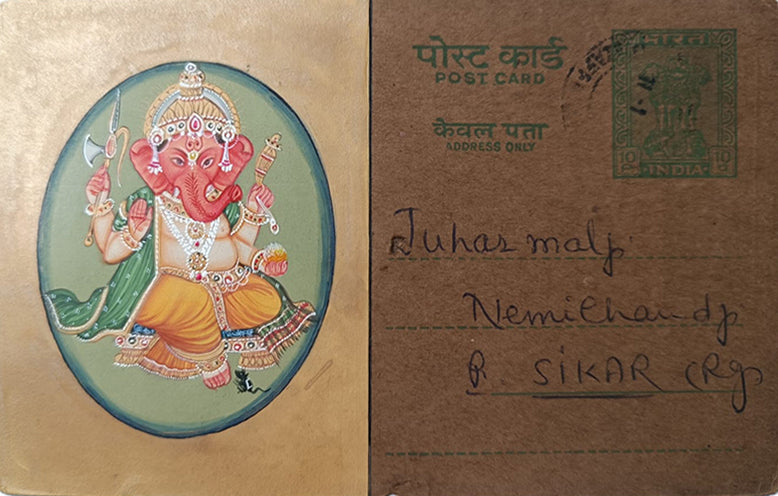 पोस्ट कार्ड
POST CARD
केवल पता
ADDRESS ONLY
भारत
10 10
INDIA
Juharmalji
Nemichandji
P. SIKAR (Raj)